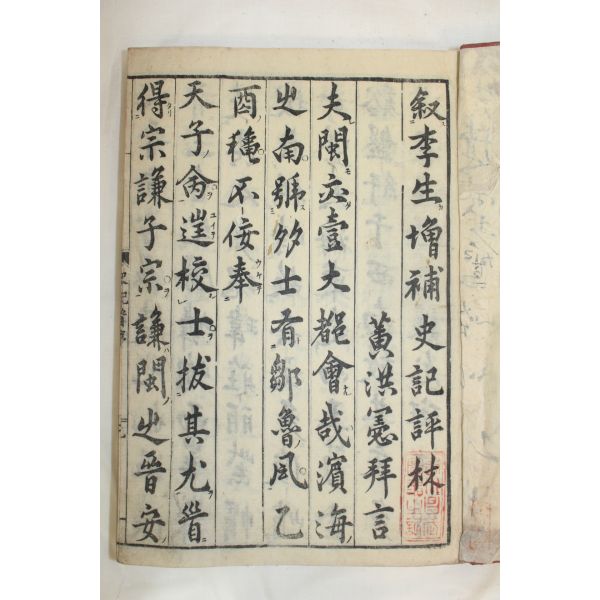 叙李生増補史記評林
黄洪憲拜言
夫閩亦壹大都會哉濱海
之南號多士有鄒魯風乙
酉穐不佞奉
天子命遑校士拔其尤首
得宗謙子宗謙閩之晉安